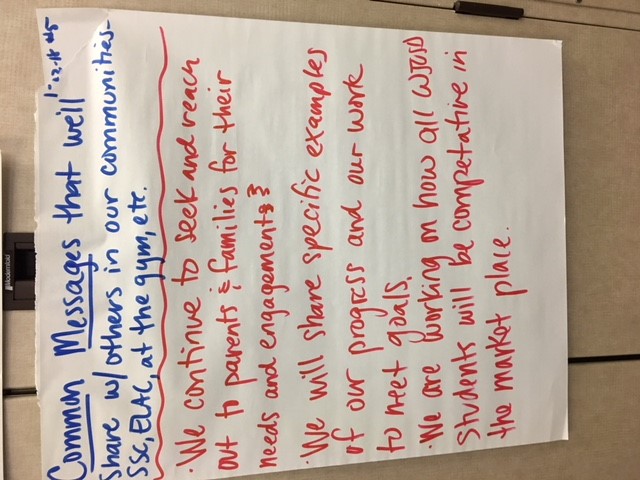 Common Messages that we'll
share w/others in our communities-
SSC, ELAC, at the gym, etc.
1-12-18 #5
· We continue to seek and reach
out to parents & families for their
needs and engagement
· We will share specific examples
of our progress and our work
to meet goals.
· We are working on how all WJUSD
students will be competative in
the market place.